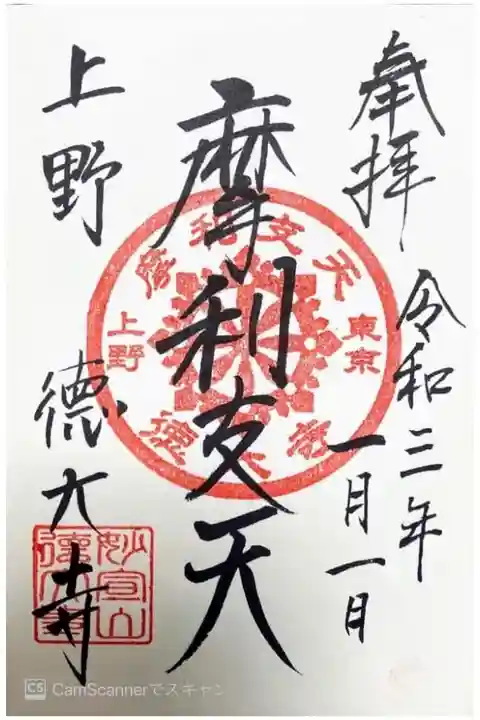 奉拝
令和三年
一月一日
摩利支天
上野
徳大寺
摩利支天
東京
上野
徳大寺
妙宣山
徳大寺
CS CamScannerでスキャン